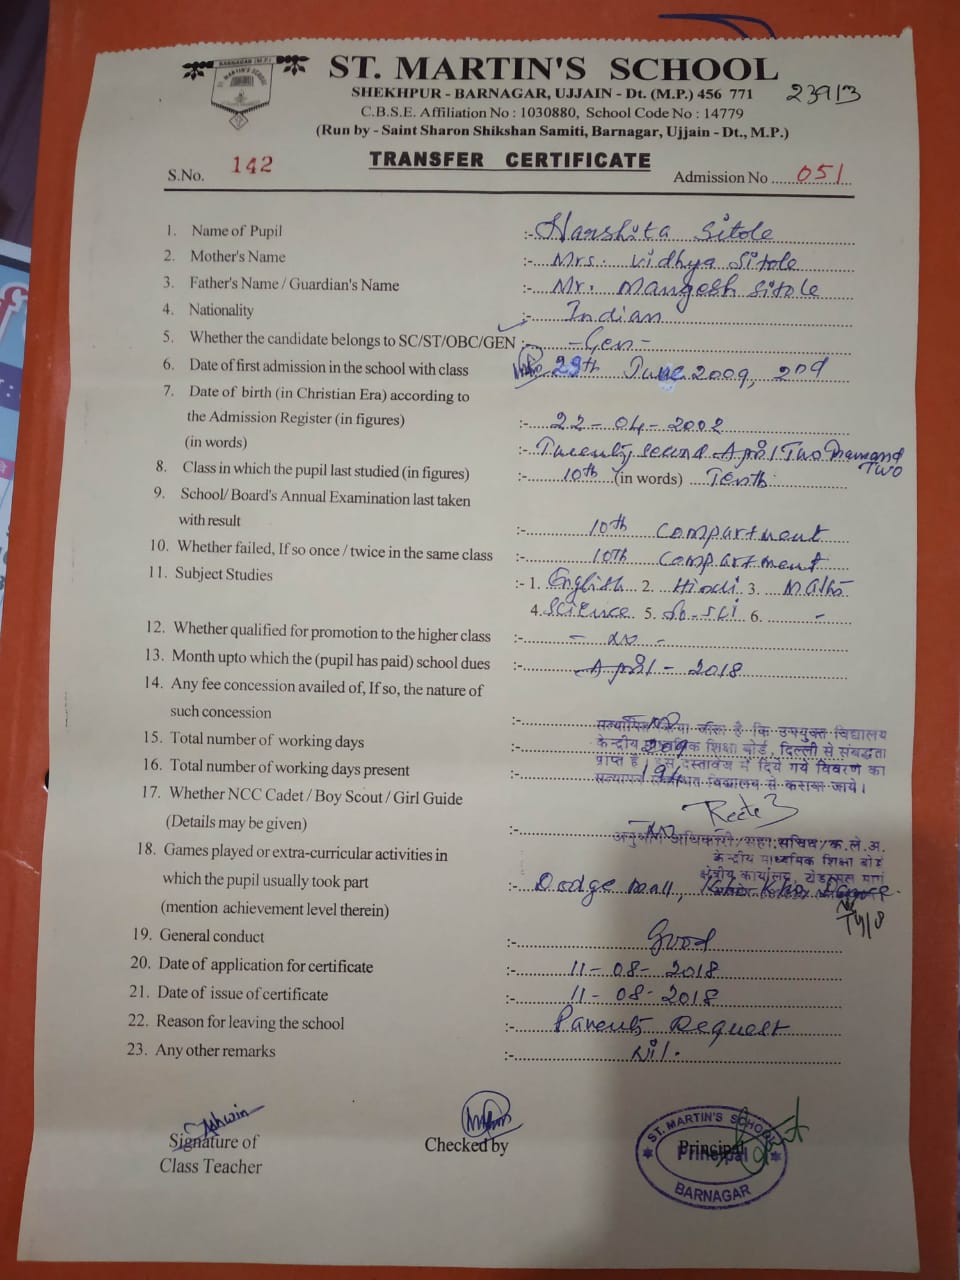 BARNAGAR (M.P.)
ST. MARTIN'S SCHOOL
ST. MARTIN'S SCHOOL
SHEKHPUR - BARNAGAR, UJJAIN - Dt. (M.P.) 456 771
23913
C.B.S.E. Affiliation No : 1030880, School Code No : 14779
(Run by - Saint Sharon Shikshan Samiti, Barnagar, Ujjain - Dt., M.P.)
TRANSFER CERTIFICATE
S.No. 142 Admission No 051
1. Name of Pupil :- Harshita Sitole
2. Mother's Name :- Mrs. Vidhya Sitole
3. Father's Name / Guardian's Name :- Mr. Mangesh Sitole
4. Nationality :- Indian
5. Whether the candidate belongs to SC/ST/OBC/GEN :- - Gen -
6. Date of first admission in the school with class 29th June 2009, 2nd
7. Date of birth (in Christian Era) according to
the Admission Register (in figures) :- 22-04-2002
(in words) :- Twenty second April Two Thousand Two
8. Class in which the pupil last studied (in figures) :- 10th (in words) Tenth
9. School/ Board's Annual Examination last taken
with result :- 10th Compartment
10. Whether failed, If so once / twice in the same class :- 10th Compartment
11. Subject Studies :- 1. English 2. Hindi 3. Maths
4. Science 5. So.Sci 6. -
12. Whether qualified for promotion to the higher class :- - No -
13. Month upto which the (pupil has paid) school dues :- April - 2018
14. Any fee concession availed of, If so, the nature of
such concession :- No
सत्यापित किया जाता है कि उपर्युक्त विद्यालय
15. Total number of working days :-
केन्द्रीय माध्यमिक शिक्षा बोर्ड, दिल्ली से संबद्धता
प्राप्त है। इस दस्तावेज में दिये गये विवरण का
16. Total number of working days present :-
सत्यापन विद्यालय से कराया जाये।
17. Whether NCC Cadet / Boy Scout / Girl Guide
(Details may be given) :- No
अनुभाग अधिकारी/सहा.सचिव/क.ले.अ.
केन्द्रीय माध्यमिक शिक्षा बोर्ड
18. Games played or extra-curricular activities in
which the pupil usually took part :- Dodge Ball, Kho Kho, Dance.
क्षेत्रीय कार्यालय,
(mention achievement level therein)
19. General conduct :- Good
20. Date of application for certificate :- 11-08-2018
21. Date of issue of certificate :- 11-08-2018
22. Reason for leaving the school :- Parents Request
23. Any other remarks :- Nil.
Ashwin
Signature of
Class Teacher
Checked by
Principal
ST. MARTIN'S SCHOOL
Principal
BARNAGAR